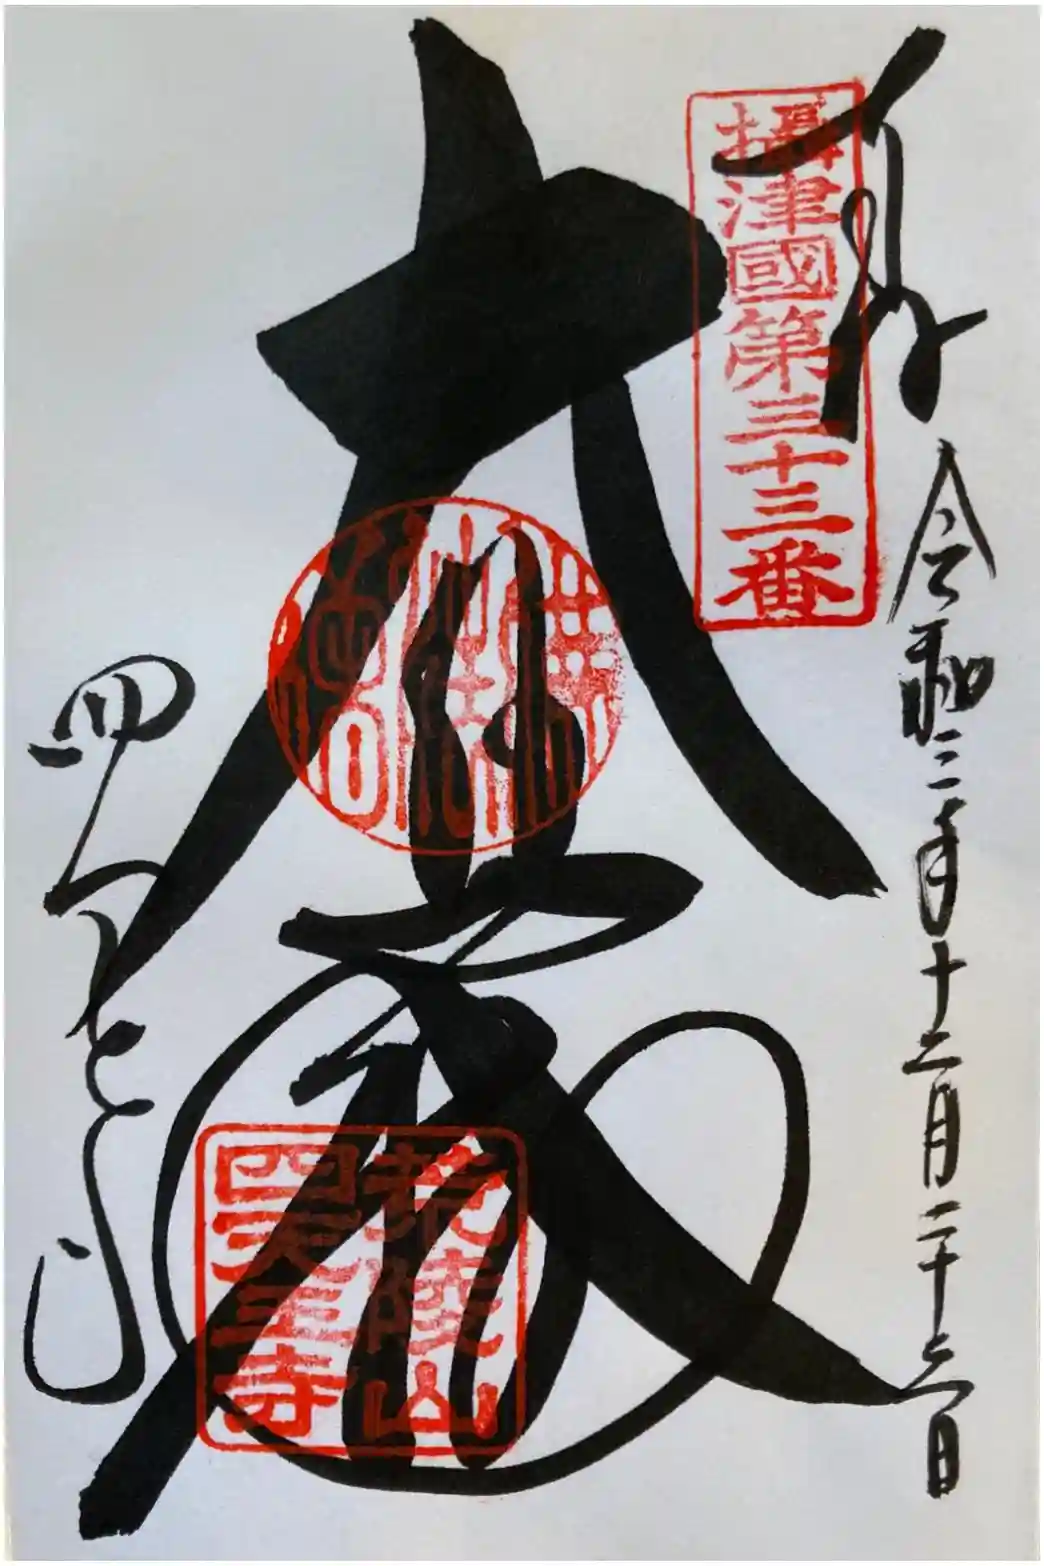 奉拝
攝津國第三十三番
令和二年十二月二十六日
大悲
荒陵山
四天王寺
四天王寺